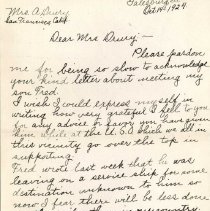 Mrs A. Drury
San Francisco Calif.
Galesburg
Oct 14th 1924
Dear Mrs Drury:-
Please pardon
me for being so slow to acknowledge
your kind letter about meeting my
son Fred.
I wish I could express myself in
writing how very grateful I am to you
for any advice or favor you have given
him while at the U.S.O which we all in
this vicinity go over the top in
supporting
Fred wrote last week that he was
leaving on a service ship for some
destination unknown to him so
now I fear there will be less done
country